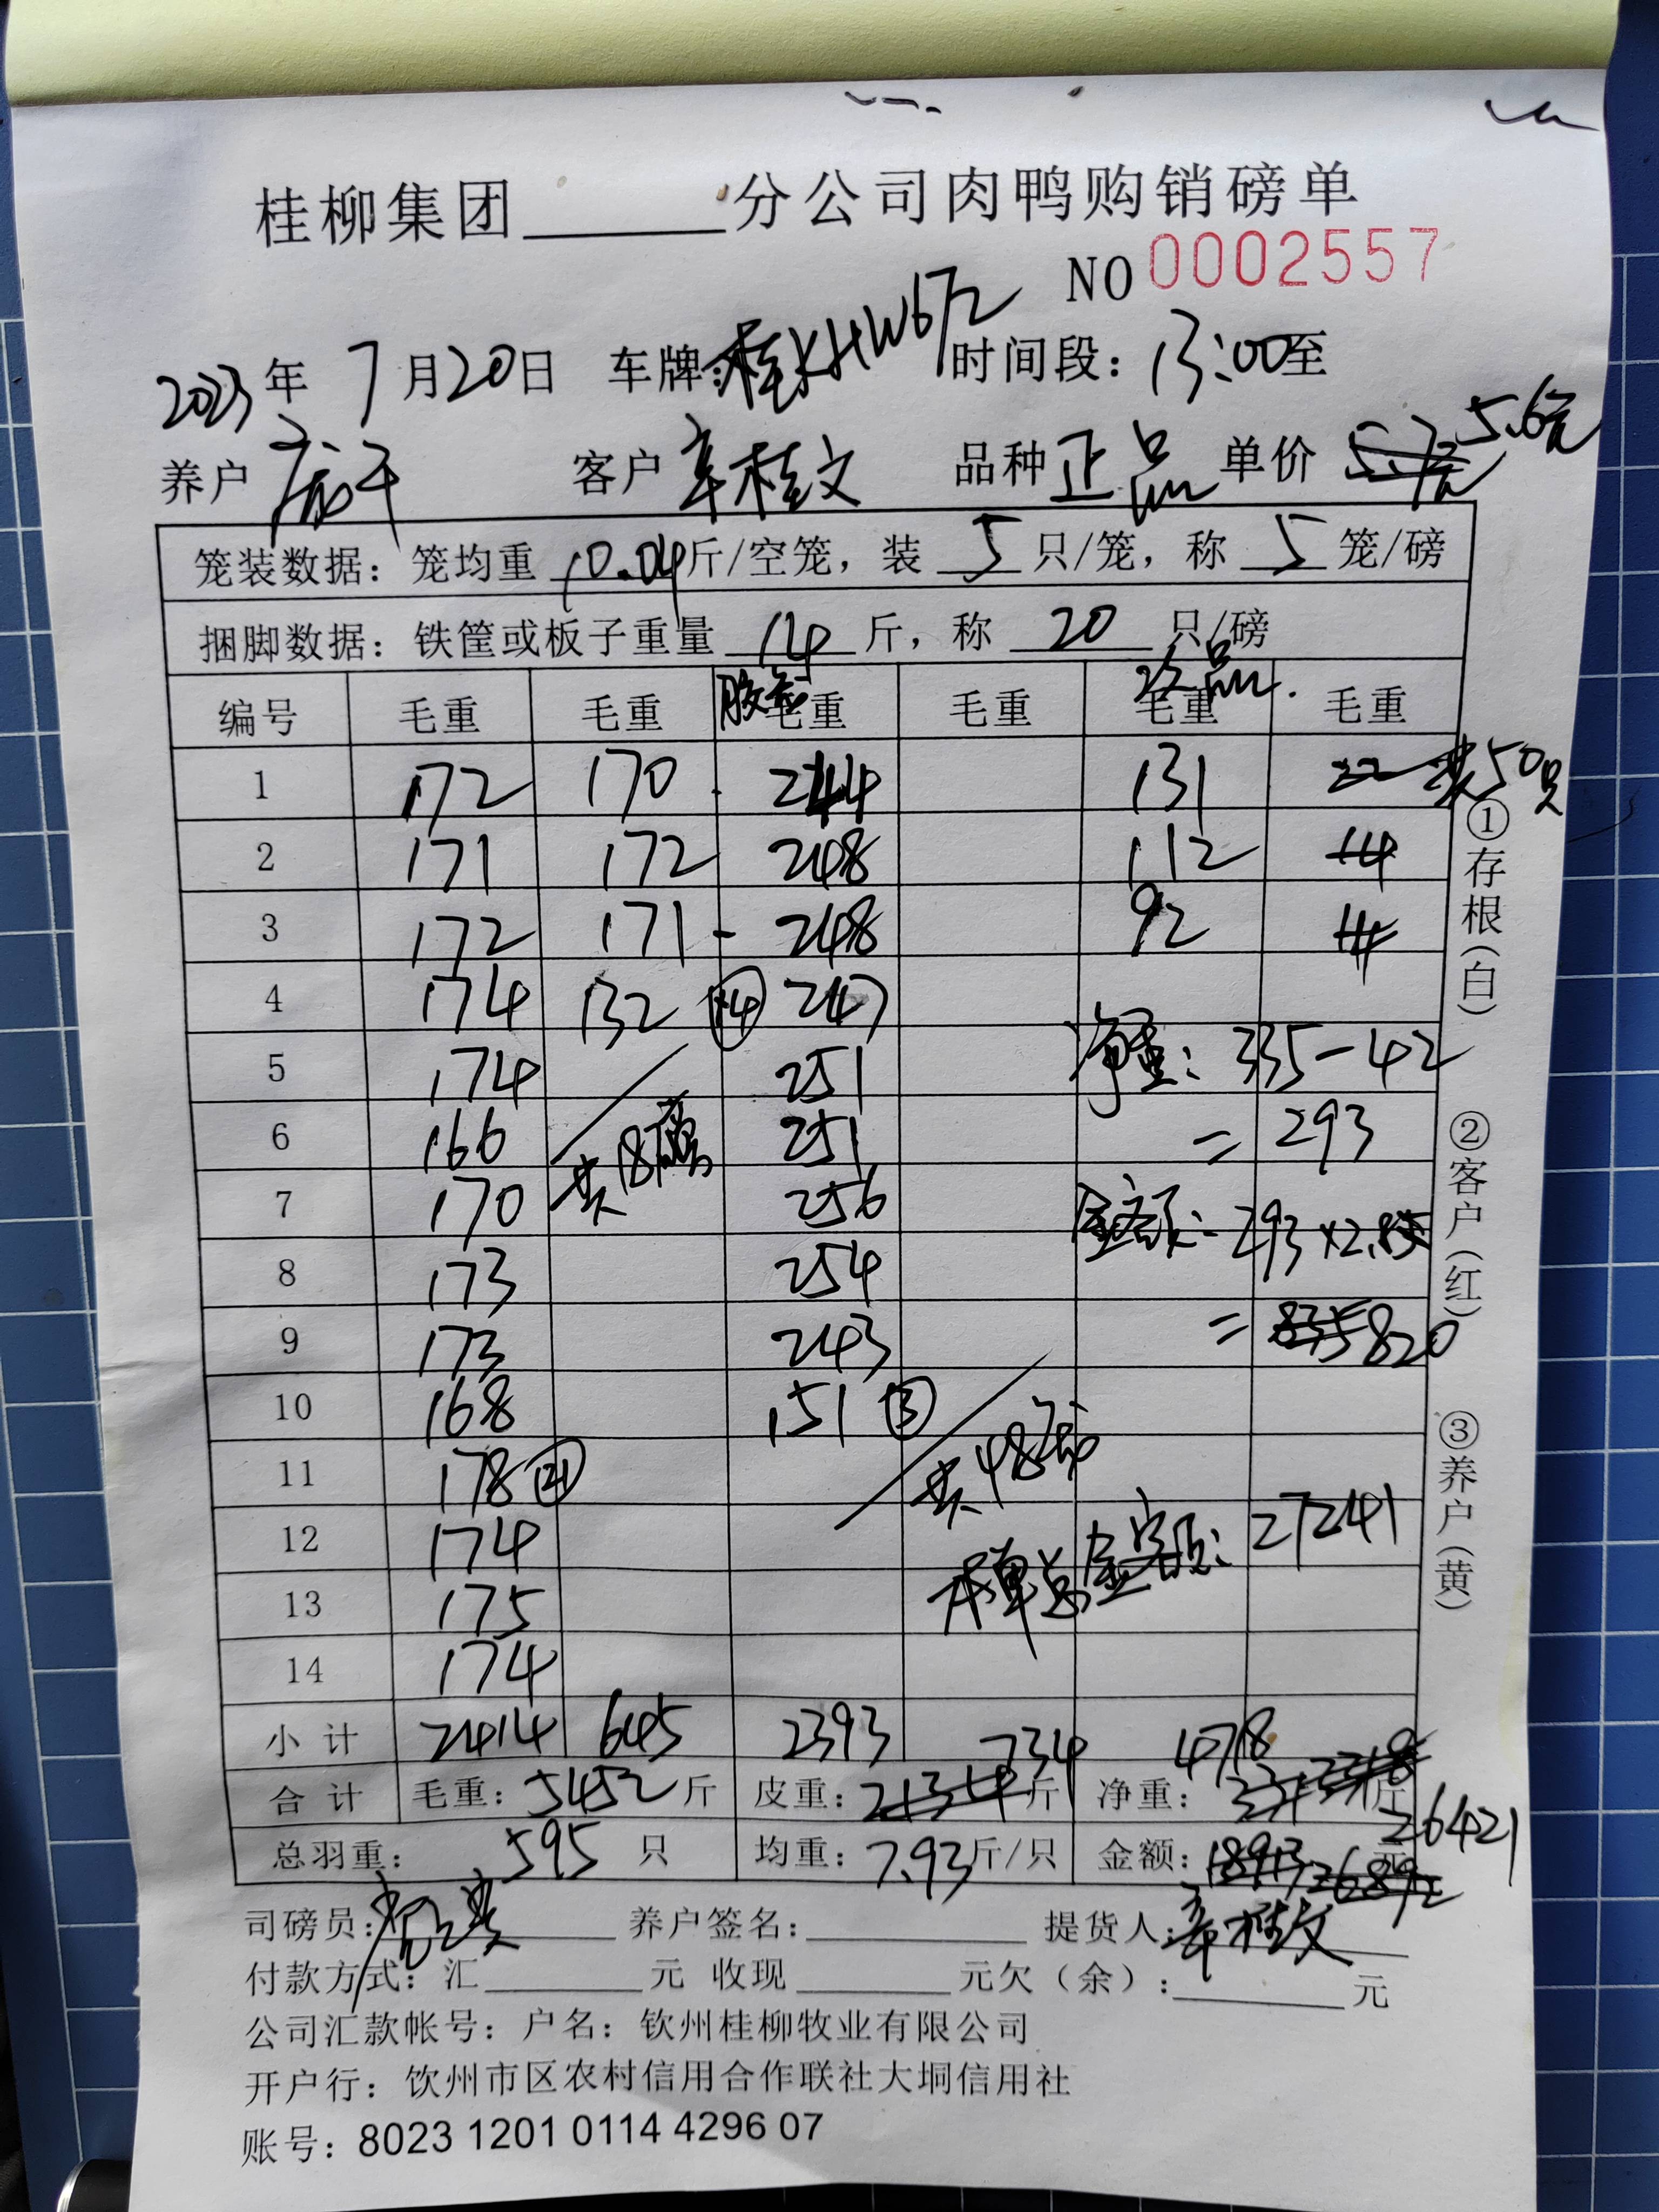 桂柳集团______分公司肉鸭购销磅单
NO 0002557
2023年 7月20日 车牌:桂KHW672 时间段：13:00至
养户 客户 辛桂文 品种 正品 单价 5.6元
笼装数据：笼均重 10.04斤/空笼，装 5 只/笼，称 5 笼/磅
捆脚数据：铁筐或板子重量 14 斤，称 20 只/磅
胶笼 次品.
编号 毛重 毛重 毛重 毛重 毛重 毛重
1 172 170 244 131 22 共50只
2 171 172 248 112 14
3 172 171 248 92 14
4 174 132 ⑭ 247
5 174 251 净重：335-42
6 166 共18磅 251 =293
7 170 256 金额：293×2.8
8 173 254
9 173 243 =835 820
10 168 151 ③
11 178 ㉑ 共48笼
12 174 本单总金额：27241
13 175
14 174
小计 2414 645 2393 734 4718
合计 毛重：5452斤 皮重：斤 净重：斤
26421
总羽重：595 只 均重：7.93斤/只 金额：元
司磅员： 养户签名： 提货人：辛桂文
付款方式：汇______元 收现______元欠（余）：______元
公司汇款帐号：户名：钦州桂柳牧业有限公司
开户行：钦州市区农村信用合作联社大垌信用社
账号：8023 1201 0114 4296 07
①存根（白）
②客户（红）
③养户（黄）